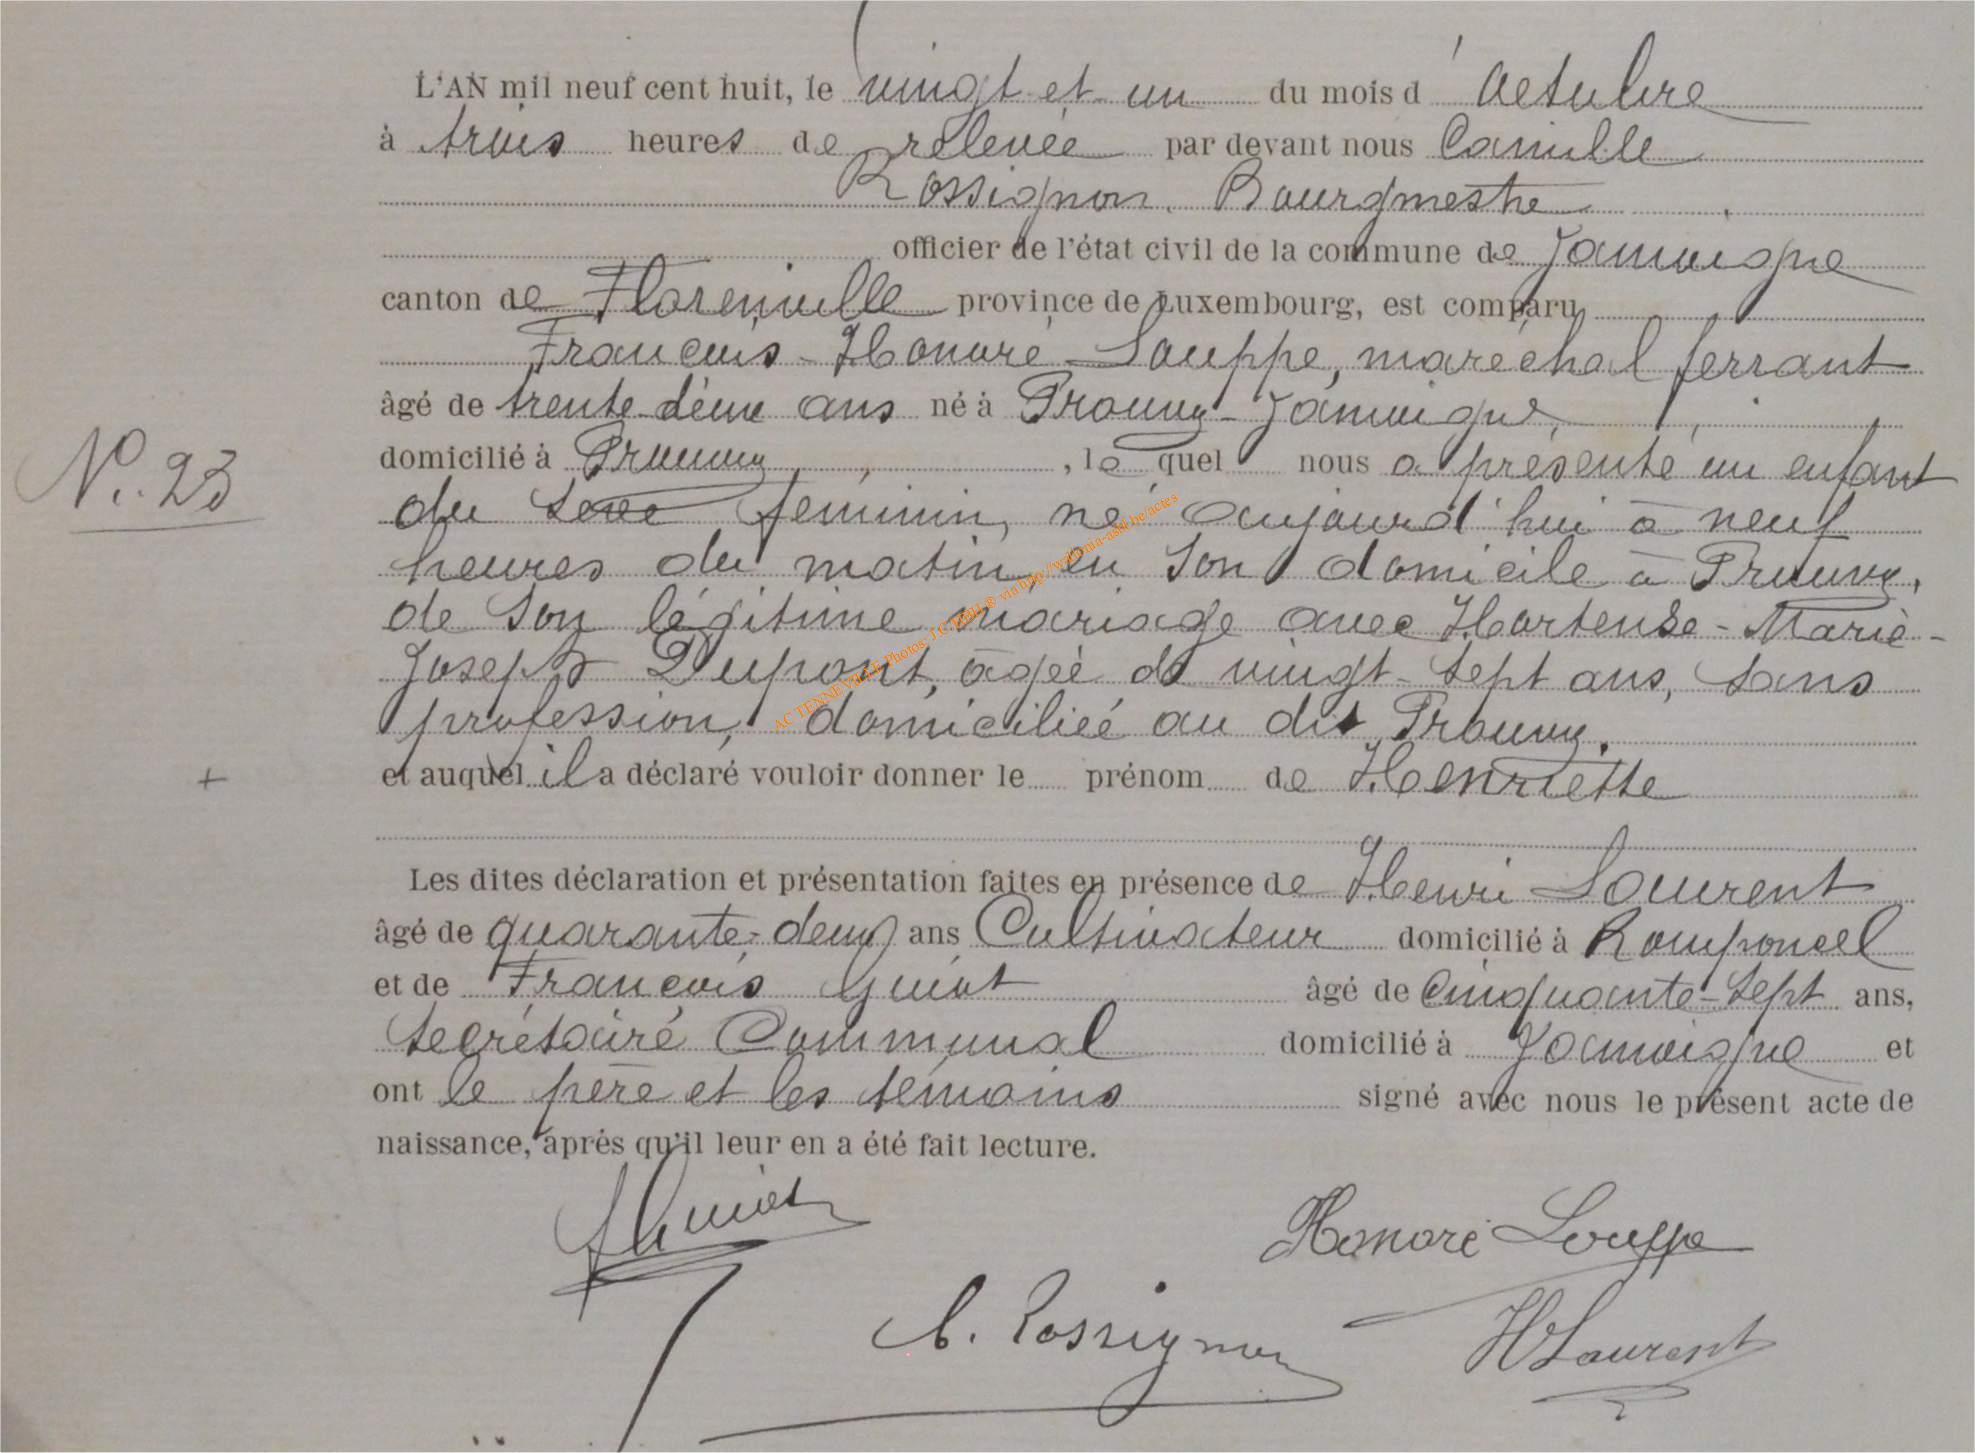 L'AN mil neuf cent huit, le vingt et un du mois d'Octobre
à trois heures de relevée par devant nous Camille
Rossignon, Bourgmestre
officier de l'état civil de la commune de Jamoigne
canton de Florenville province de Luxembourg, est comparu
François-Honoré Louppe, maréchal ferrant
âgé de trente-deux ans né à Prouvy-Jamoigne,
N° 23
domicilié à Prouvy, lequel nous a présenté un enfant
du sexe féminin, né aujourd'hui à neuf
heures du matin en son domicile à Prouvy,
de son légitime mariage avec Hortense-Marie-
Joseph Dupont, âgée de vingt-sept ans, sans
profession, domiciliée au dit Prouvy.
+ et auquel il a déclaré vouloir donner le prénom de Henriette
Les dites déclaration et présentation faites en présence de Henri Laurent
âgé de quarante-deux ans Cultivateur domicilié à Romponcel
et de François Guiot âgé de Cinquante-sept ans,
secrétaire Communal domicilié à Jamoigne et
ont le père et les témoins signé avec nous le présent acte de
naissance, après qu'il leur en a été fait lecture.
Guiot
Honoré Louppe
C. Rossignon
H Laurent